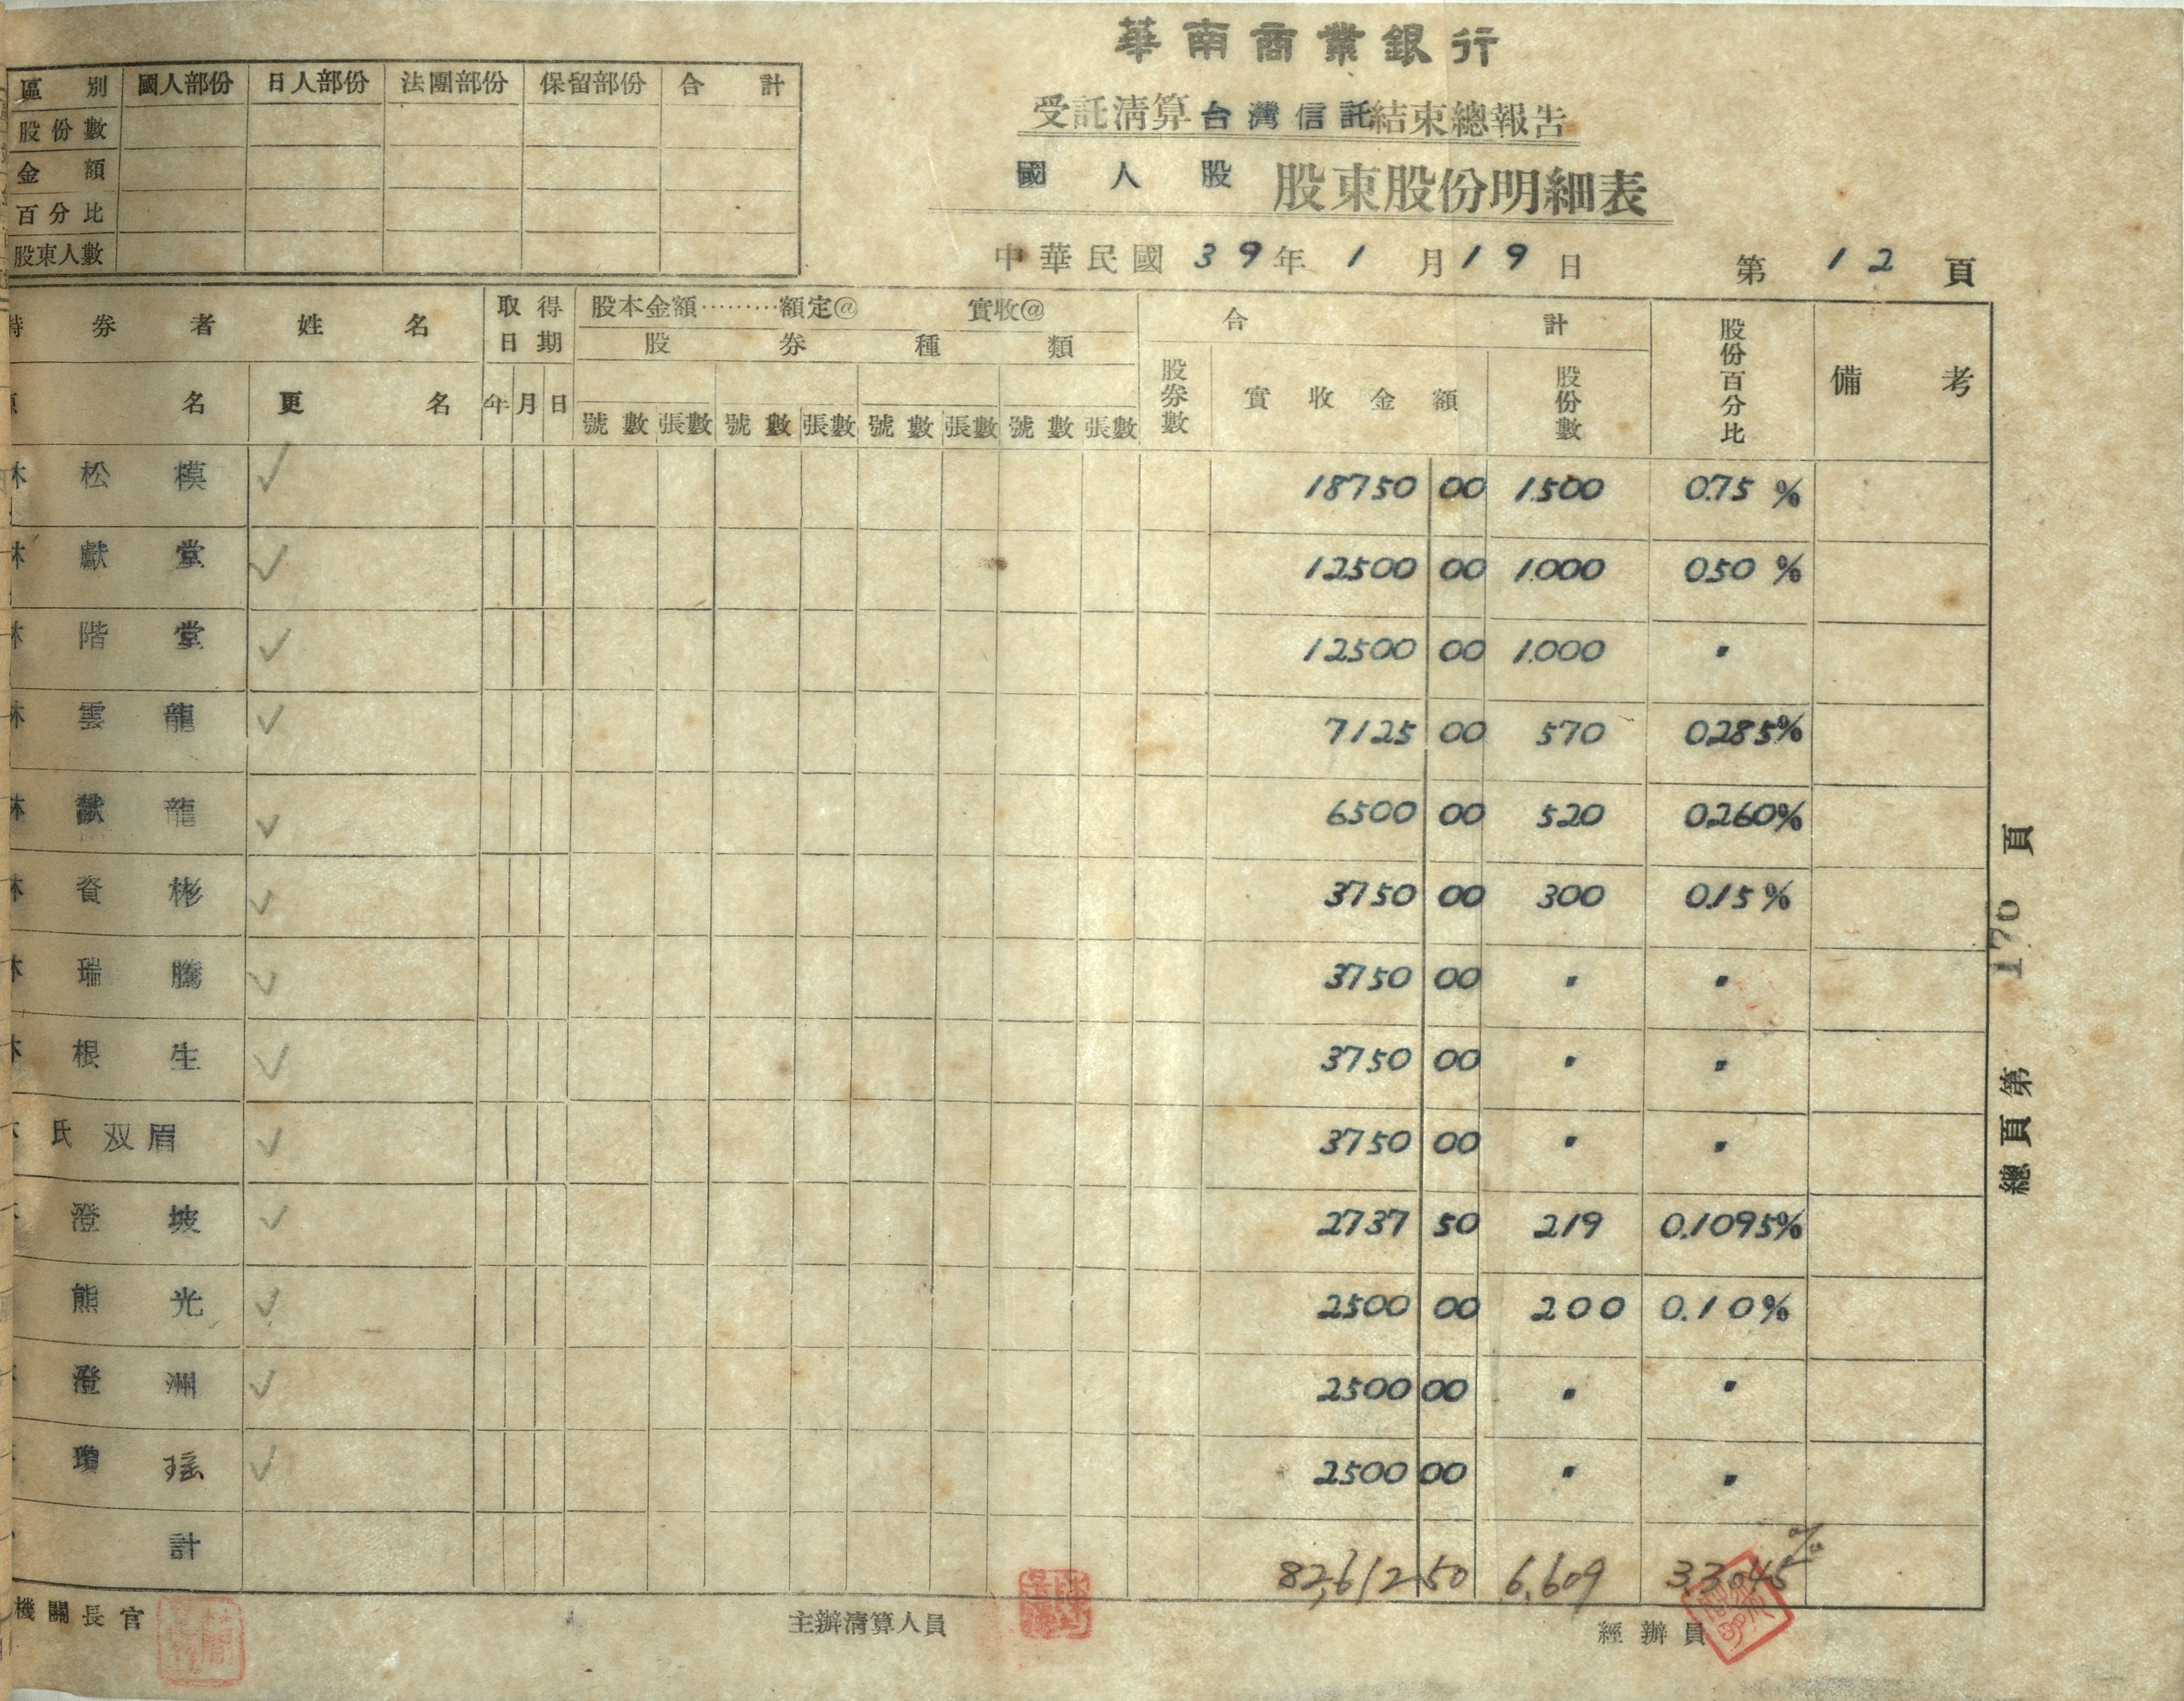 華南商業銀行
受託清算台灣信託結束總報告
國人股 股東股份明細表
中華民國 39年 1月19日 第 12 頁
區別 國人部份 日人部份 法團部份 保留部份 合計
股份數
金額
百分比
股東人數
券者姓名 取得日期 股本金額………額定@ 實收@ 合計 股份百分比 備考
股券種類
名 更名 年 月 日 號數 張數 號數 張數 號數 張數 號數 張數 股券數 實收金額 股份數
林 松 模 ✓ 18750 00 1.500 0.75 %
林 獻 堂 ✓ 12500 00 1.000 0.50 %
林 階 堂 ✓ 12500 00 1.000 〃
林 雲 龍 ✓ 7125 00 570 0.285%
林 猷 龍 ✓ 6500 00 520 0.260%
林 資 彬 ✓ 3750 00 300 0.15 %
林 瑞 騰 ✓ 3750 00 〃 〃
林 根 生 ✓ 3750 00 〃 〃
林 氏 双 眉 ✓ 3750 00 〃 〃
澄 坡 ✓ 2737 50 219 0.1095%
熊 光 ✓ 2500 00 200 0.10%
澄 洲 ✓ 2500 00 〃 〃
瓊 瑶 ✓ 2500 00 〃 〃
計 82,612 50 6,609 3.3045%
機關長官 主辦清算人員 經辦員
總頁第 176 頁